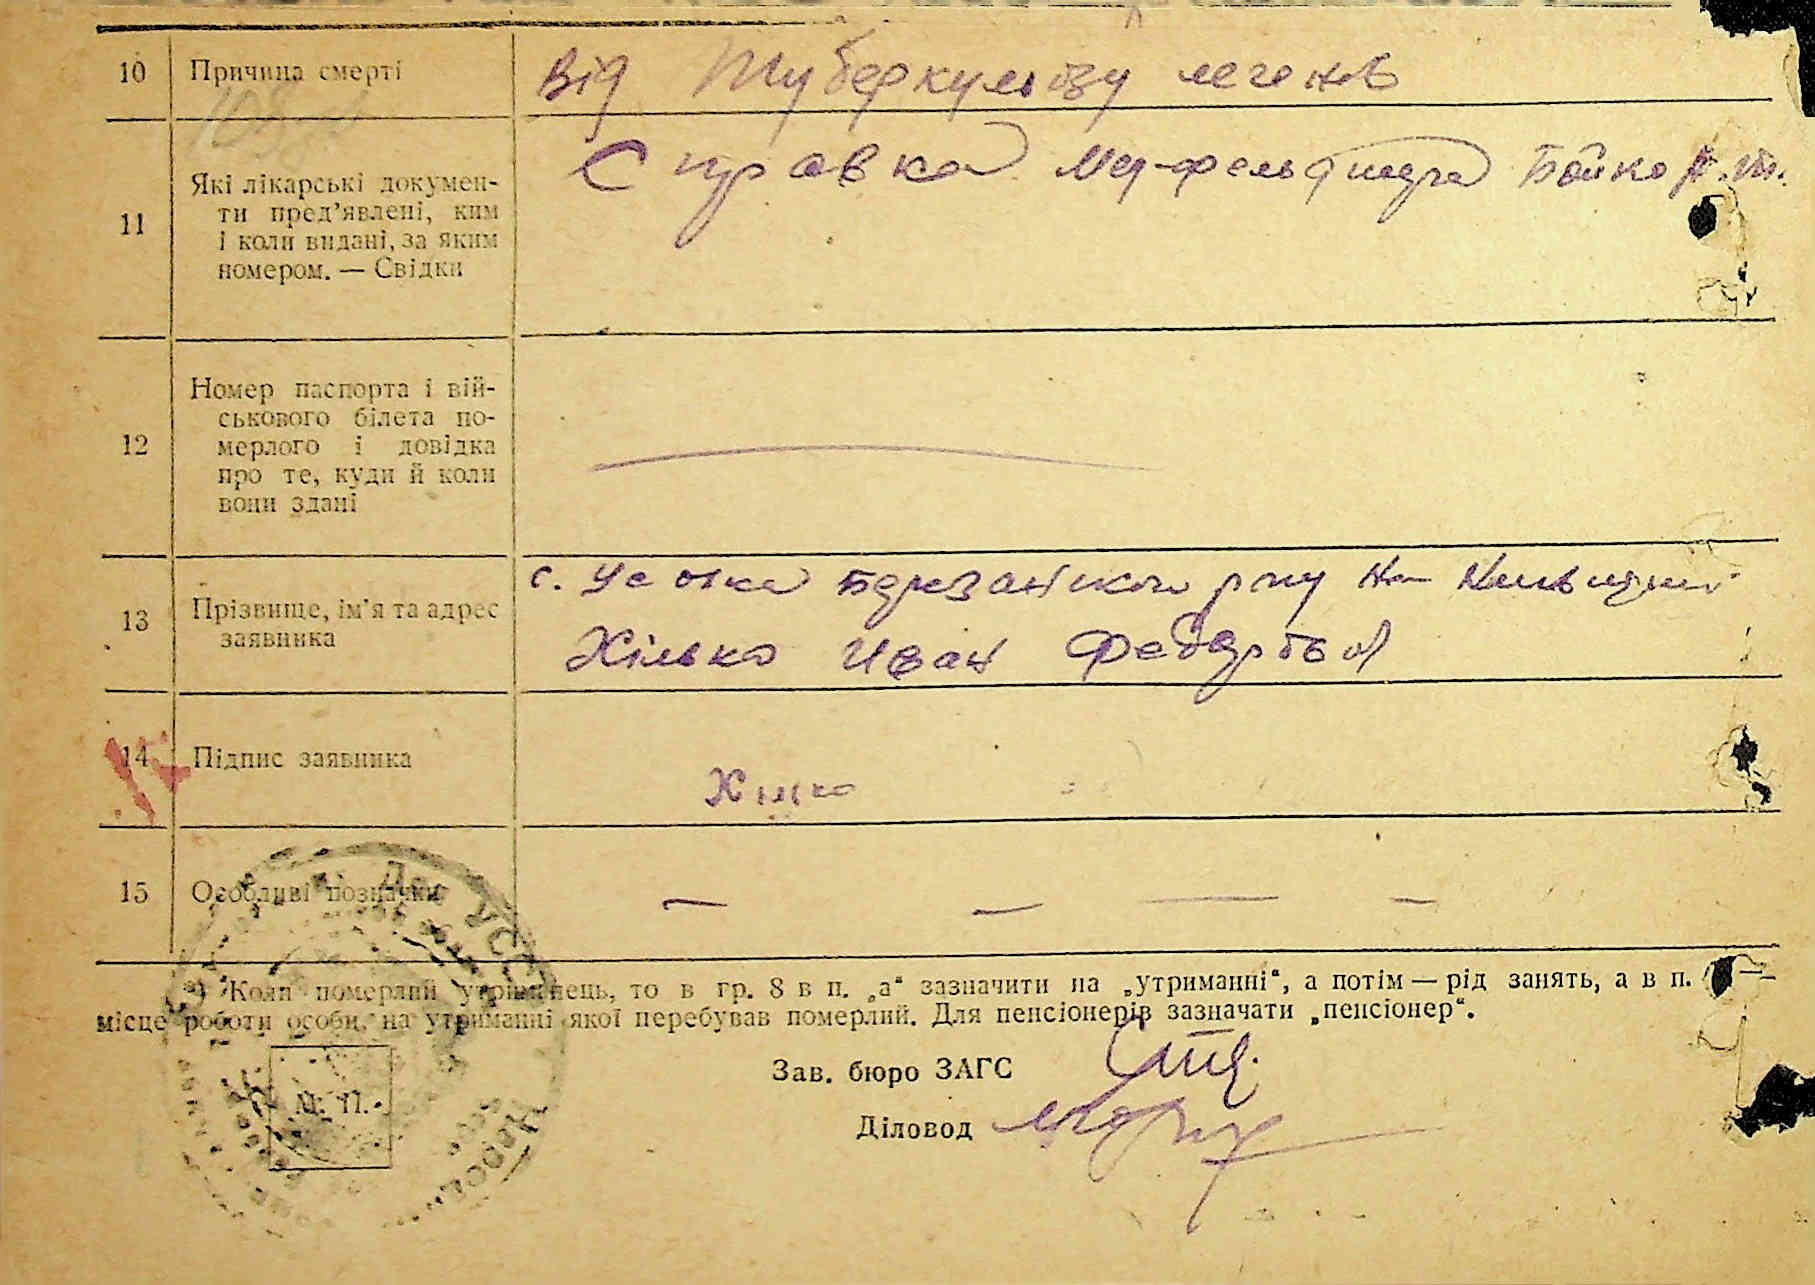 10 Причина смерті Від Туберкульозу легенів
11 Які лікарські докумен-
ти пред'явлені, ким
і коли видані, за яким
номером. — Свідки
Справка Мед-фельдшера Бойко
12 Номер паспорта і вій-
ськового білета по-
мерлого і довідка
про те, куди й коли
вони здані
13 Прізвище, ім'я та адрес
заявника
с. Усовка Березанського р-ну на Київщині
Хілько Иван Федорович
14 Підпис заявника
Хілко
15 Особливі позначки — — — —
*) Коли померлий утриманець, то в гр. 8 в п. „а“ зазначити на „утриманні“, а потім — рід занять, а в п.
місце роботи особи, на утриманні якої перебував померлий. Для пенсіонерів зазначати „пенсіонер“.
Зав. бюро ЗАГС
Діловод
М. П.